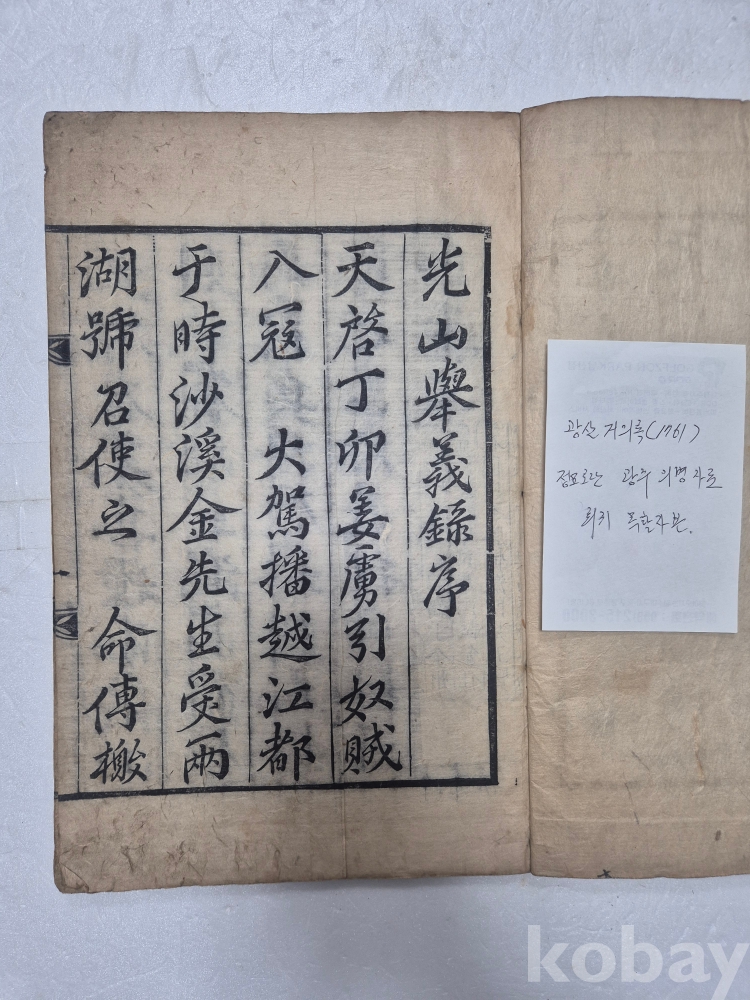 光山擧義錄序
天啓丁卯姜虜引奴賊
入冦 大駕播越江都
于時沙溪金先生受兩
湖號召使之 命傳檄
광산 거의록(1761)
정묘호란 광주 의병자료
희귀 목활자본.
kobay